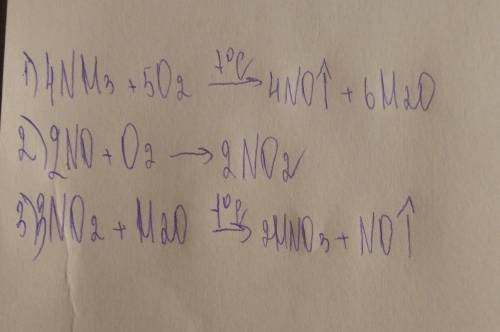 1) 4NH₃ + 5O₂ t°C→ 4NO↑ + 6H₂O
2) 2NO + O₂ → 2NO₂
3) 3NO₂ + H₂O t°C→ 2HNO₃ + NO↑